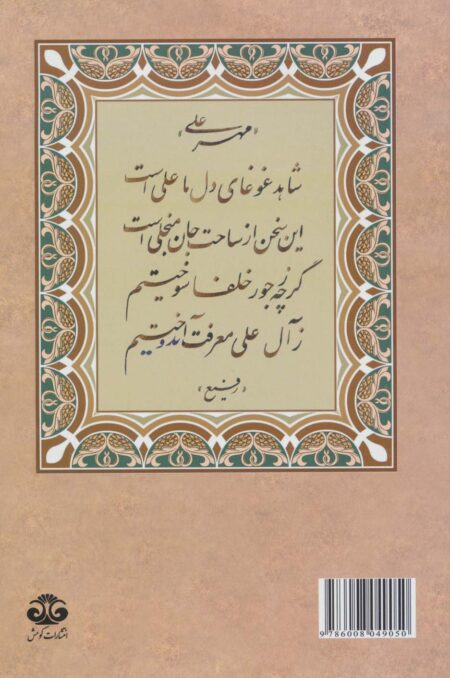 «مهر علی»
شاهد غوغای دل ما علی است
این سخن از ساحت جان منجلی است
گرچه ز جور خلفا سوختیم
ز آل علی معرفت اندوختیم
«رفیع»
انتشارات کومش
9 786008 049050